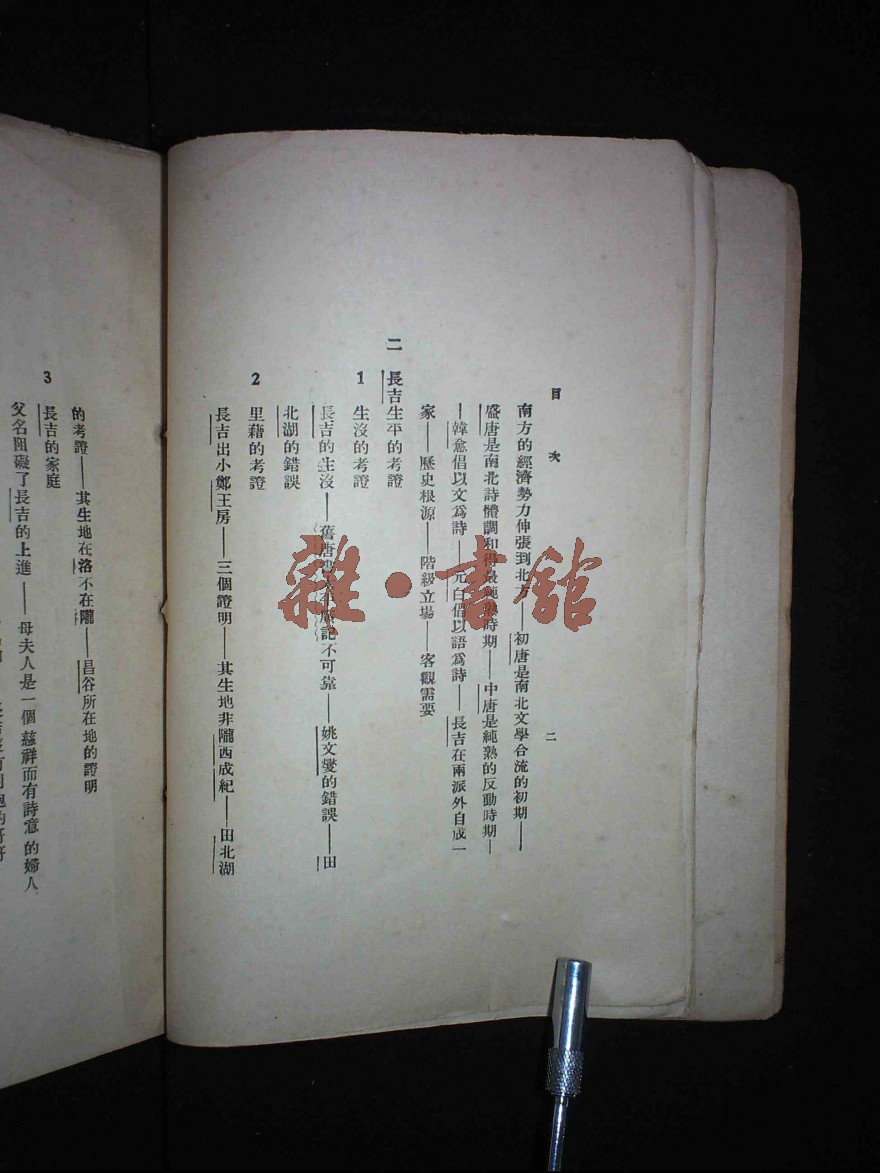 目次
二
南方的經濟勢力伸張到北方——初唐是南北文學合流的初期——
盛唐是南北詩體調和得最純熟時期——中唐是純熟的反動時期—
—韓愈倡以文爲詩——元白倡以語爲詩——長吉在兩派外自成一
家——歷史根源——階級立場——客觀需要
二 長吉生平的考證
1 生沒的考證
長吉的生沒——舊唐書 記不可靠——姚文燮的錯誤——田
北湖的錯誤
2 里藉的考證
長吉出小鄭王房——三個證明——其生地非隴西成紀——田北湖
的考證——其生地在洛不在隴——昌谷所在地的證明
3 長吉的家庭
父名阻礙了長吉的上進——母夫人是一個慈祥而有詩意的婦人
雜·書館